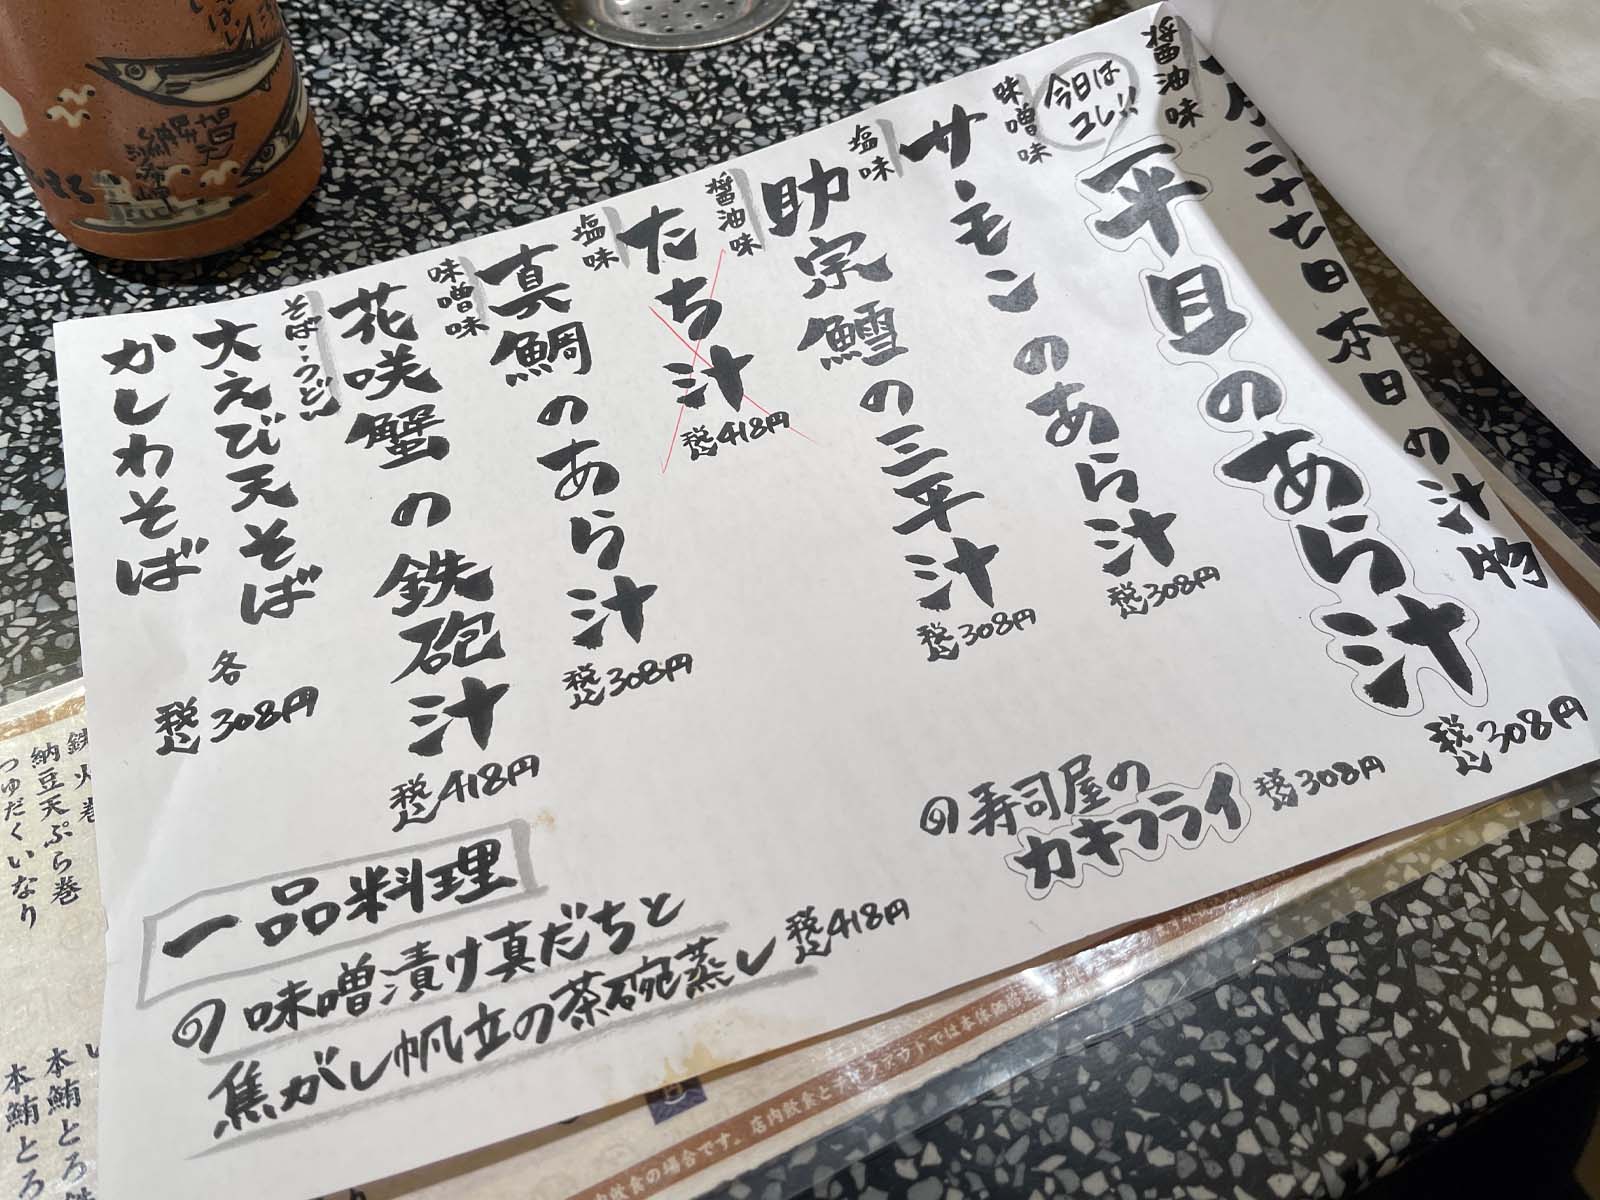 月二十七日本日の汁物
醤油味
平目のあら汁
税込308円
今日は
コレ!!
味噌味
サーモンのあら汁
税込308円
塩味
助宗鱈の三平汁
税込308円
醤油味
たち汁
税込418円
塩味
真鯛のあら汁
税込308円
味噌味
花咲蟹の鉄砲汁
税込418円
そば・うどん
大えび天そば
かしわそば
各
税込308円
寿司屋の
カキフライ
税込308円
一品料理
味噌漬け真だちと
焦がし帆立の茶碗蒸し
税込418円
鉄火巻
納豆天ぷら巻
つゆだくいなり
本鮪とろ鉄
本鮪とろ
の場合です。店内飲食とテイクアウトでは本体価格